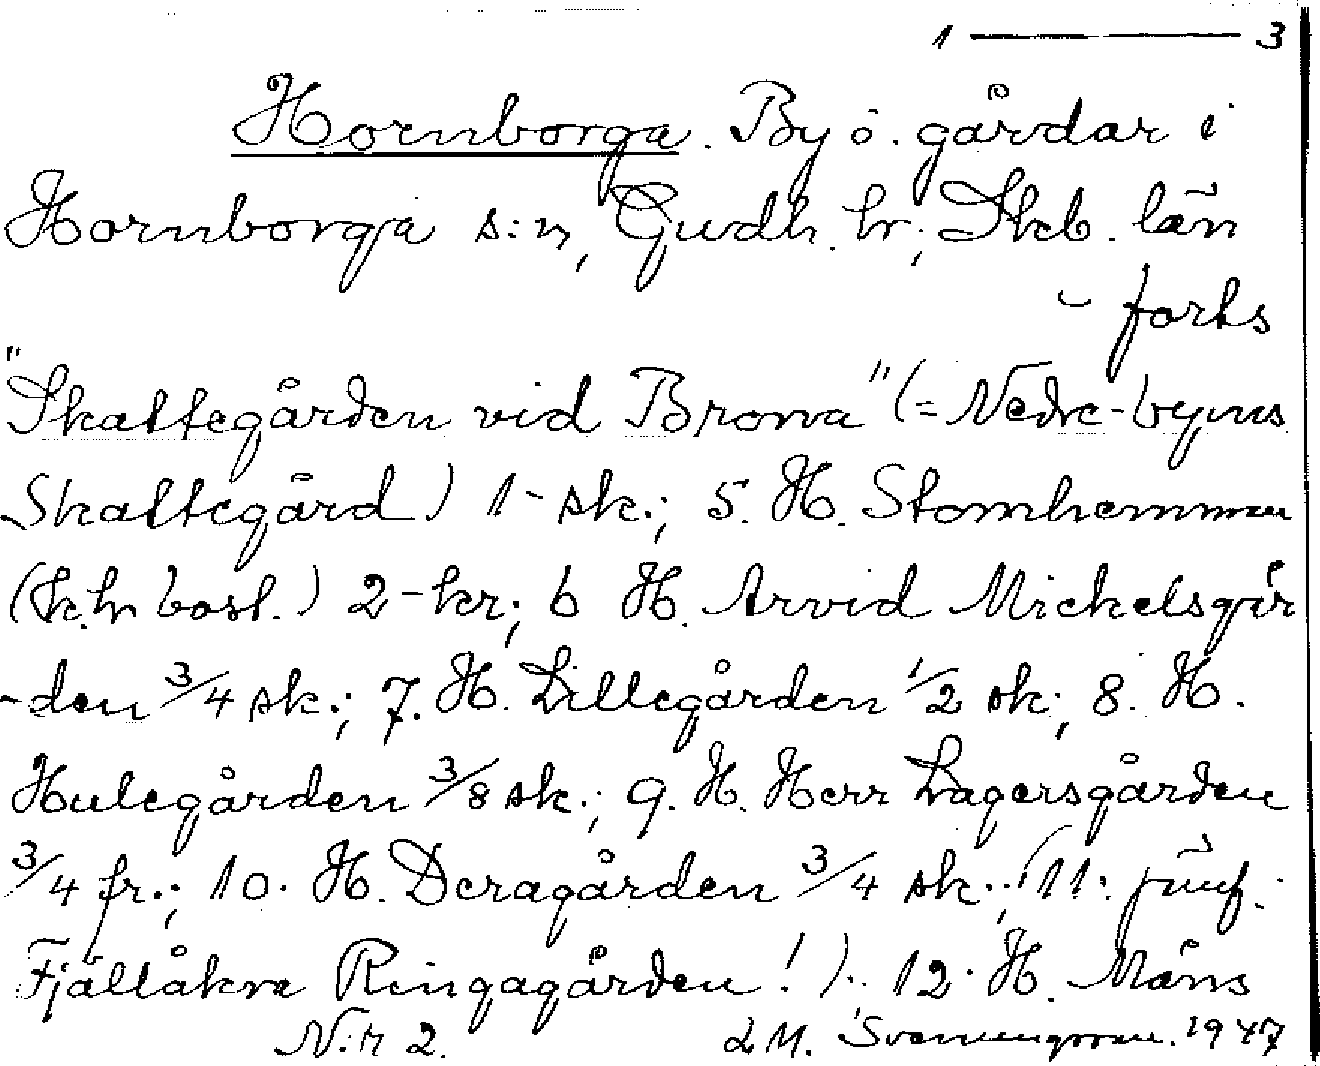 1 ——— 3
Hornborga. By o. gårdar i
Hornborga s:n, Gudh. hr; Skb. län
– forts
"Skattegården vid Brorna" (= Nedre-byns
Skattegård) 1 - sk.; 5. H. Stomhemman
(k.hr bost.) 2 - kr; 6 H. Arvid Mickelsgår
-den 3/4 sk.; 7. H. Lillegården 1/2 sk; 8. H.
Hulegården 3/8 sk.; 9. H. Herr Lagersgården
3/4 fr.; 10. H. Deragården 3/4 sk.; (11. jämf.
Fjällåkra Ringagården!). 12. H. Måns
N:r 2. Svenungsson. 1947